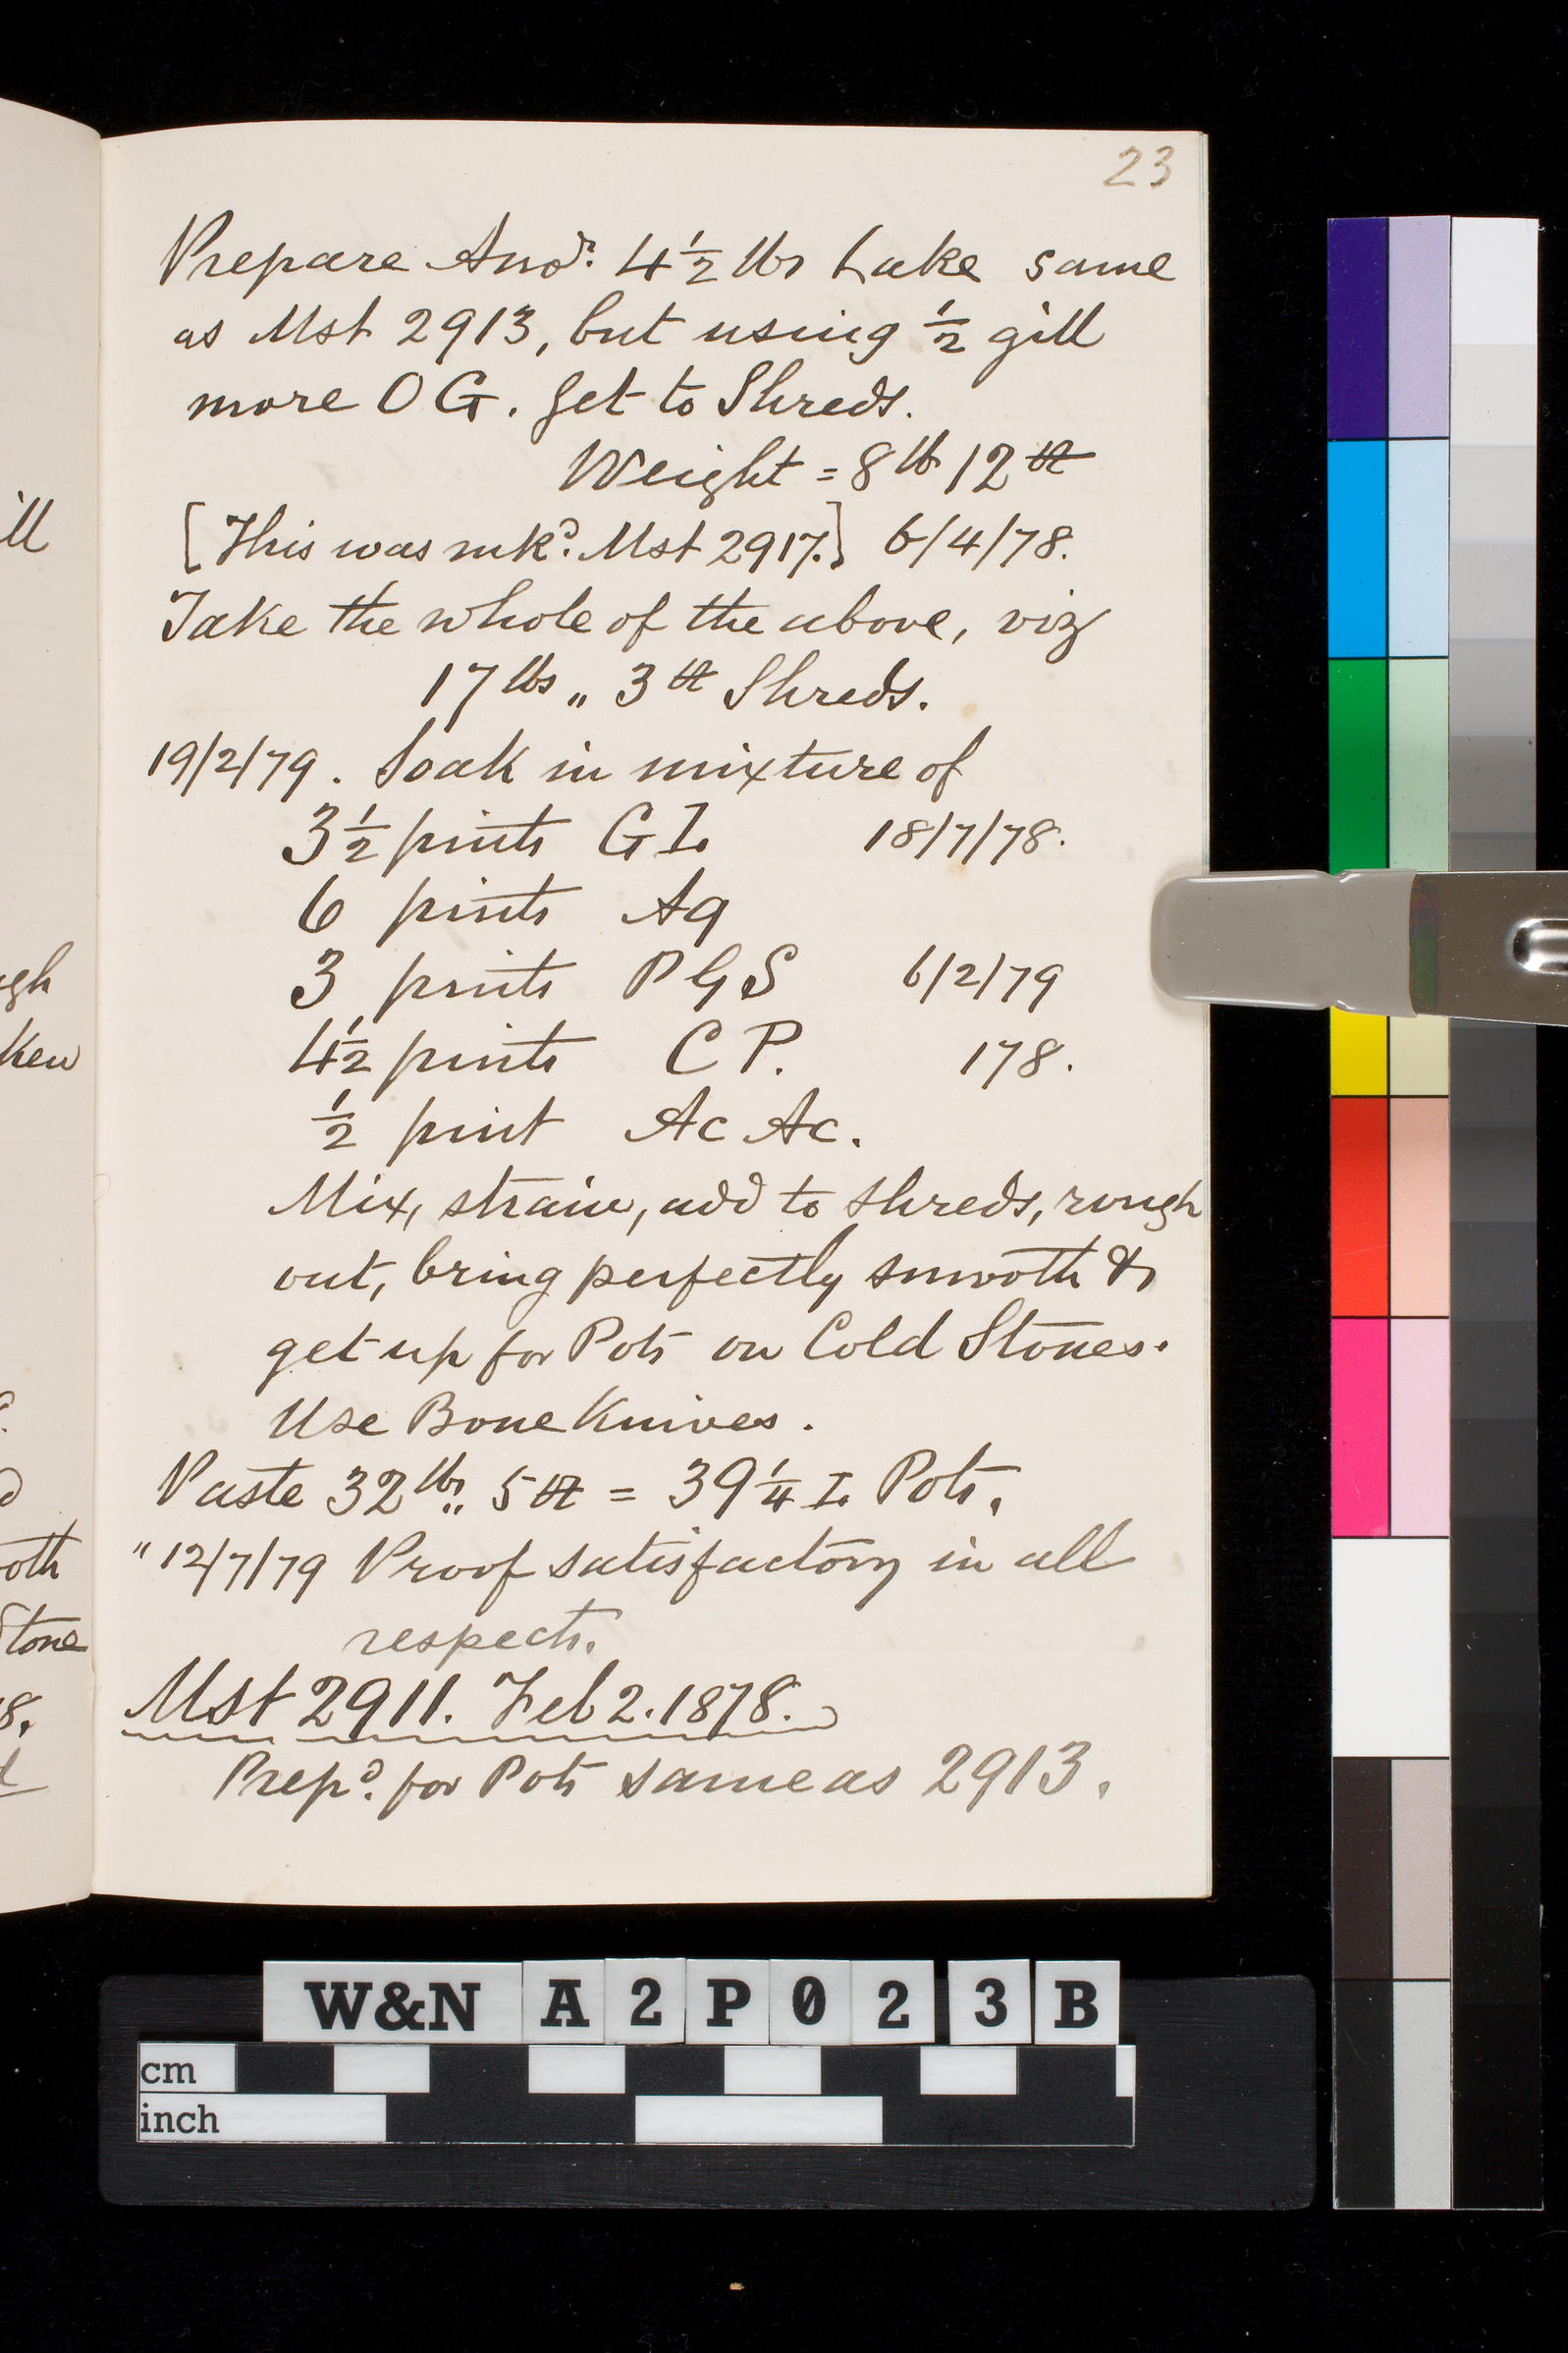 23
Prepare Anor. 4 1/2 lbs Lake same
as Mst 2913, but using 1/2 gill
more O G. Get to Shreds.
Weight = 8 lb 12 oz
[This was mkd. Mst 2917.] 6/4/78.
Take the whole of the above, viz
17 lbs „ 3 oz Shreds.
19/2/79. Soak in mixture of
3 1/2 pints G I. 18/7/78.
6 pints Aq
3 pints P G S 6/2/79
4 1/2 pints C P. 178.
1/2 pint Ac Ac.
Mix, strain, add to shreds, rough
out, bring perfectly smooth &
get up for Pots on Cold Stones.
Use Bone Knives.
Paste 32 lbs „ 5 oz = 39 1/4 I. Pots.
" 12/7/79 Proof satisfactory in all
respects.
Mst 2911. Feb 2. 1878.
Prepd. for Pots same as 2913.
ill
ugh
Ken
oth
Stone
8.
W&N A 2 P 0 2 3 B
cm
inch